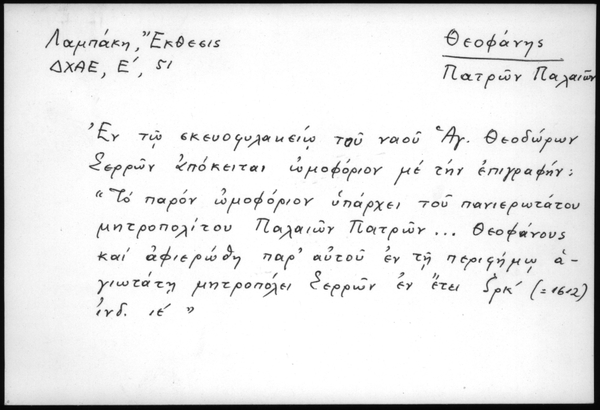 Λαμπάκη, "Έκθεσις
ΔΧΑΕ, Ε', 51
Θεοφάνης
Πατρῶν Παλαιῶν
Ἐν τῷ σκευοφυλακείῳ τοῦ ναοῦ Ἁγ. Θεοδώρων
Σερρῶν ἀπόκειται ὠμοφόριον μέ τήν ἐπιγραφήν:
"Τό παρόν ὠμοφόριον ὑπάρχει τοῦ πανιερωτάτου
μητροπολίτου Παλαιῶν Πατρῶν... Θεοφάνους
καί ἀφιερώθη παρ' αὐτοῦ ἐν τῇ περιφήμῳ ἁ-
γιωτάτῃ μητροπόλει Σερρῶν ἐν ἔτει ζρκ' (=1612)
ἰνδ. ιέ "